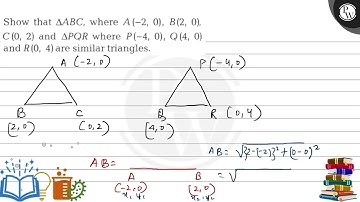 Show that ΔABC, where A(−2, 0), B(2, 0),
C(0, 2) and ΔPQR where P(−4, 0), Q(4, 0)
and R(0, 4) are similar triangles.
A (-2, 0)
P (-4, 0)
B
C
(2, 0)
(0, 2)
Q
R (0, 4)
(4, 0)
AB =
A
B
(-2, 0)
(2, 0)
x₁ y₁
x₂ y₂
AB = √{2-(-2)}² + (0-0)²
= √